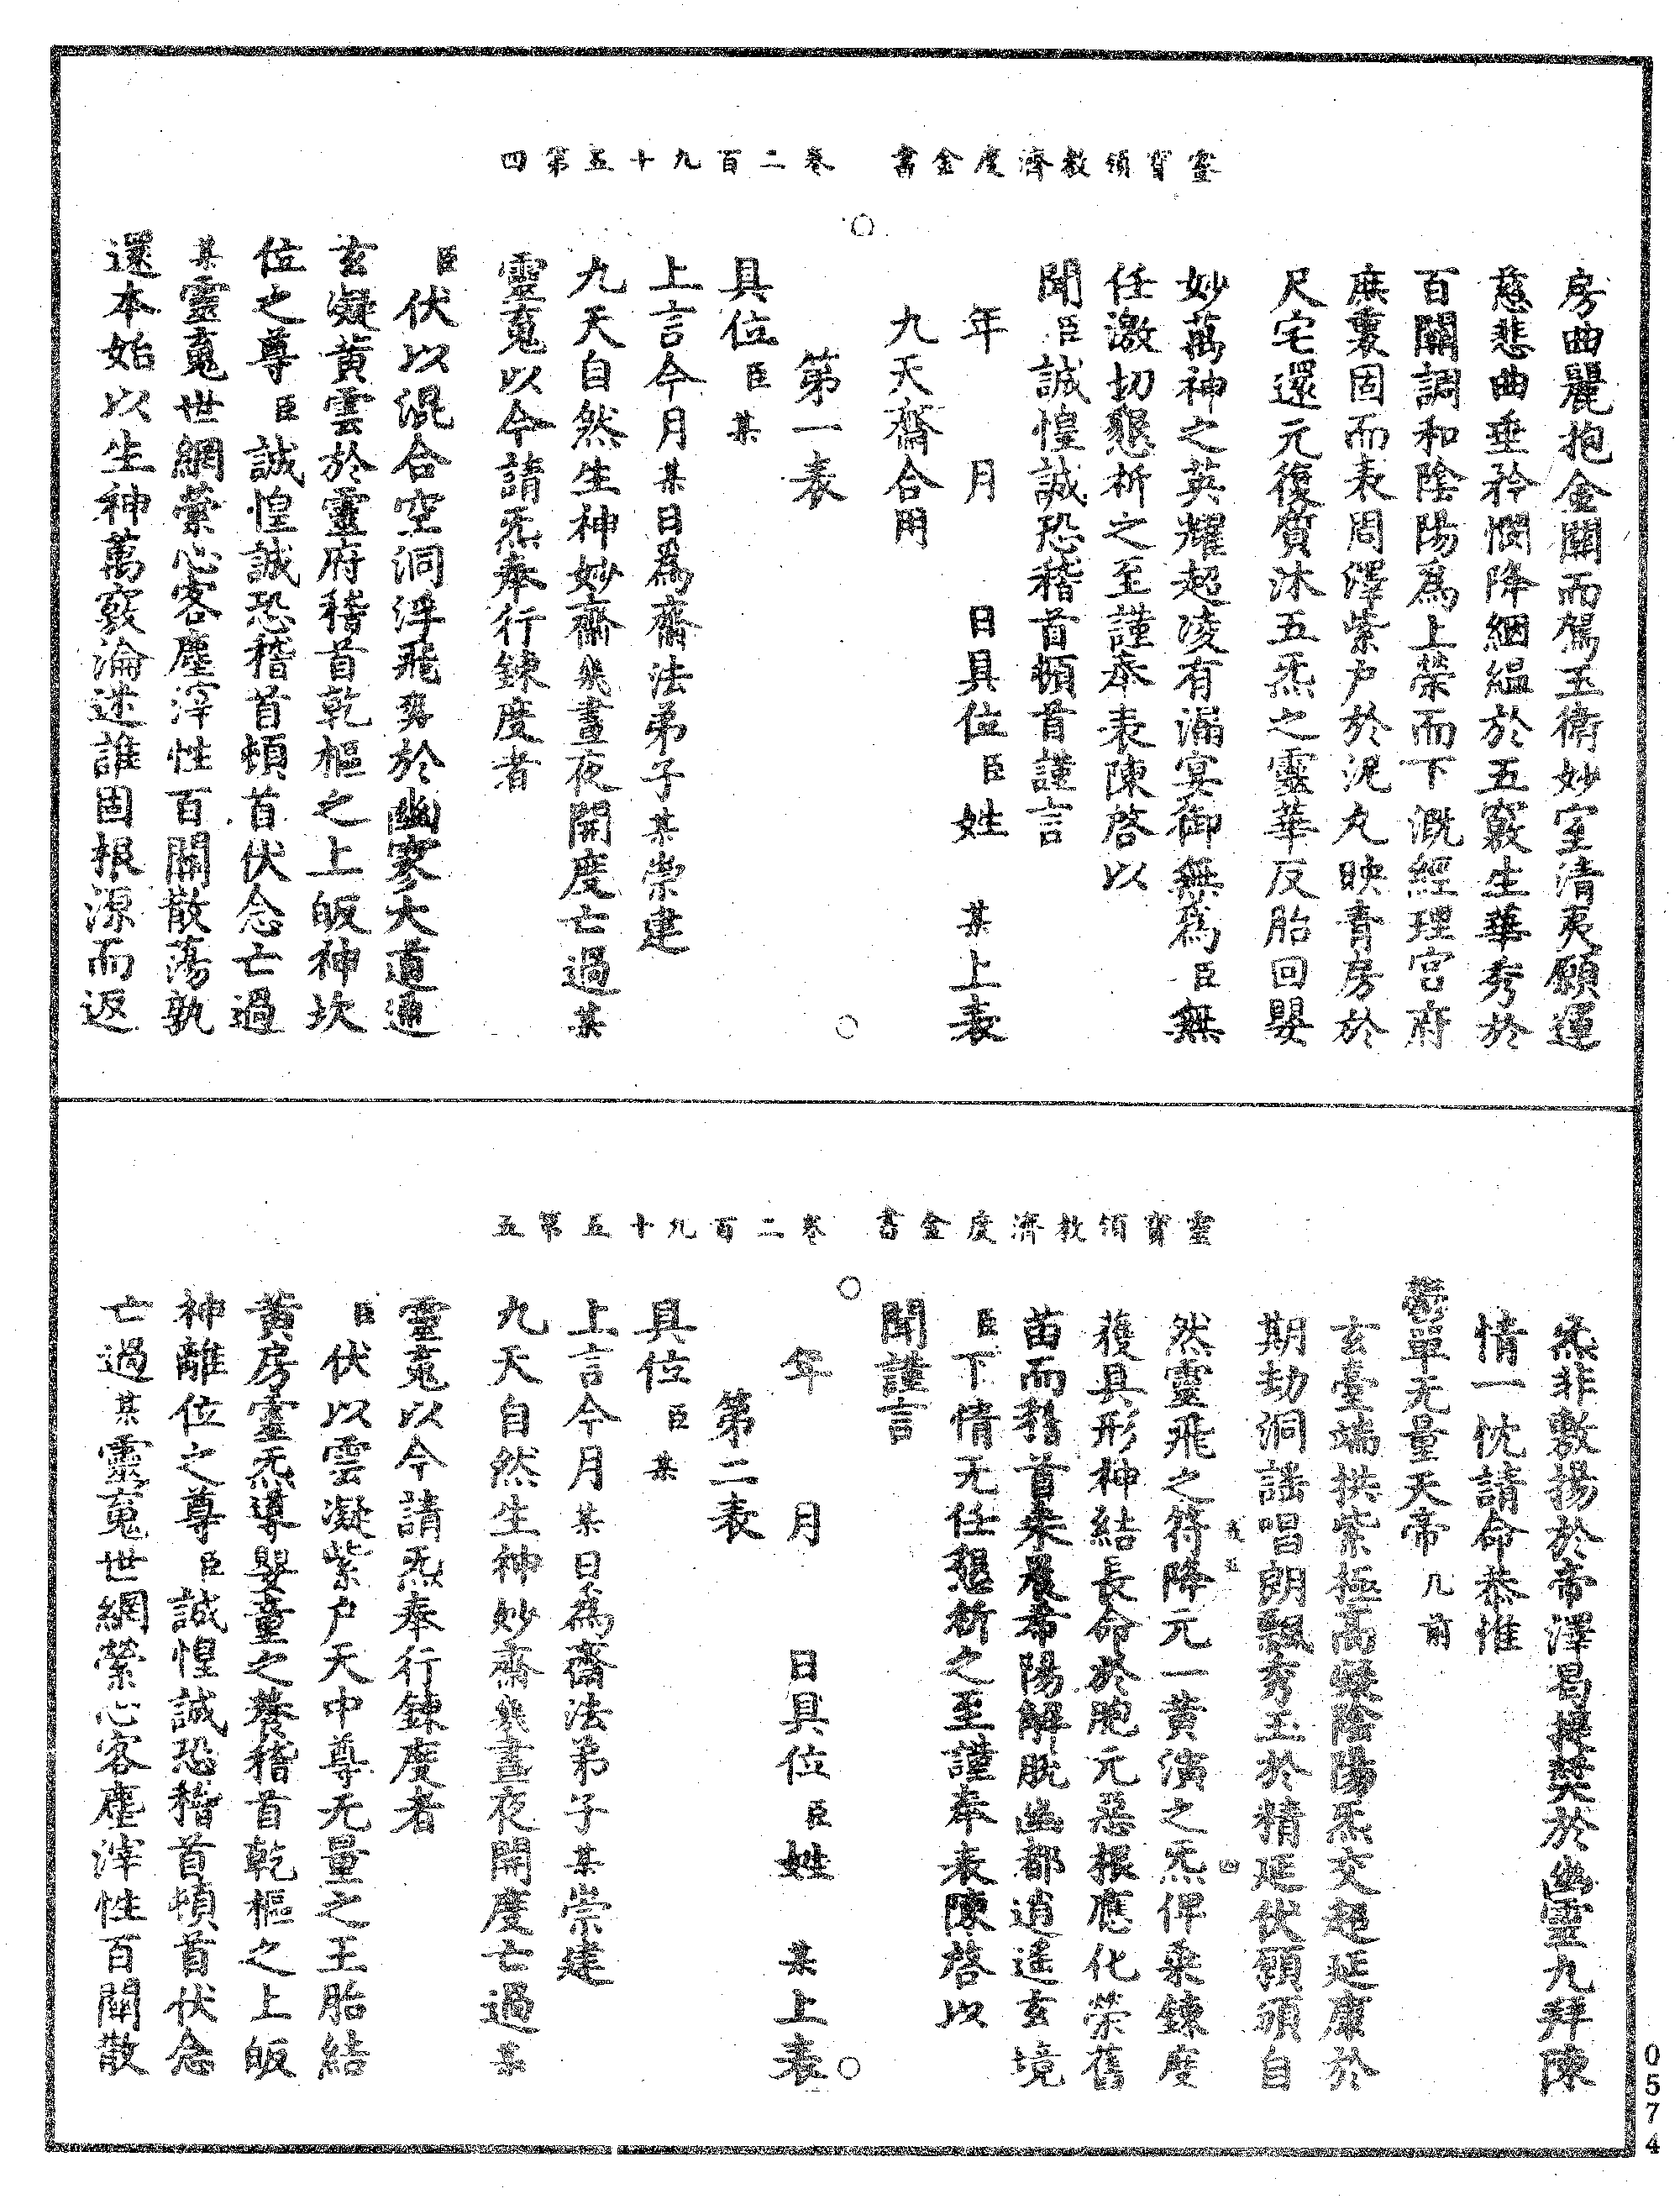 靈寶領教濟度金書　卷二百九十五第四
房曲麗抱金關而駕玉衛妙室清夷願運
慈悲曲垂矜憫降絪縕於五竅生華秀於
百關調和陰陽爲上榮而下溉經理宮府
庶裏固而表周澤紫户於泥丸映青房於
尺宅還元復質沐五炁之靈華反胎回嬰
妙萬神之英耀超凌有漏冥御無爲臣無
任激切懇祈之至謹奉表陳啓以
聞臣誠惶誠恐稽首頓首謹言
年　月　日具位臣姓　某上表
九天齋合用
第一表
具位臣某
上言今月某日爲齋法弟子某崇建
九天自然生神妙齋幾晝夜開度亡過某
靈䰟以今請炁奉行鍊度者
臣伏以混合空洞浮飛㷱於幽寥大道通
玄凝黄雲於靈府稽首乾樞之上皈神坎
位之尊臣誠惶誠恐稽首頓首伏念亡過
某靈䰟世網縈心客塵滓性百關散蕩孰
還本始以生神萬竅淪迷誰固根源而返
靈寶領教濟度金書　卷二百九十五第五
炁非敷揚於帝澤曷提奬於幽靈九拜陳
情一忱請命恭惟
鬱單无量天帝几前
玄臺端拱紫極高凝陰陽炁交超延康於
期劫洞謡唱朗飄秀玉於精延伏願頒自
然靈飛之符降元一黄演之炁俾乘鍊度
獲具形神結長命於胞元惡根應化榮舊
苗而稽首朱晨希陽解脱幽都逍遥玄境
臣下情无任懇祈之至謹奉表陳啓以
聞謹言
年　月　日具位臣姓　某上表
第二表
具位臣某
上言今月某日爲齋法弟子某崇建
九天自然生神妙齋幾晝夜開度亡過某
靈䰟以今請炁奉行鍊度者
臣伏以雲凝紫户天中尊无量之王胎結
黄房靈炁導嬰童之養稽首乾樞之上皈
神離位之尊臣誠惶誠恐稽首頓首伏念
亡過某靈䰟世網縈心客塵滓性百關散
0574